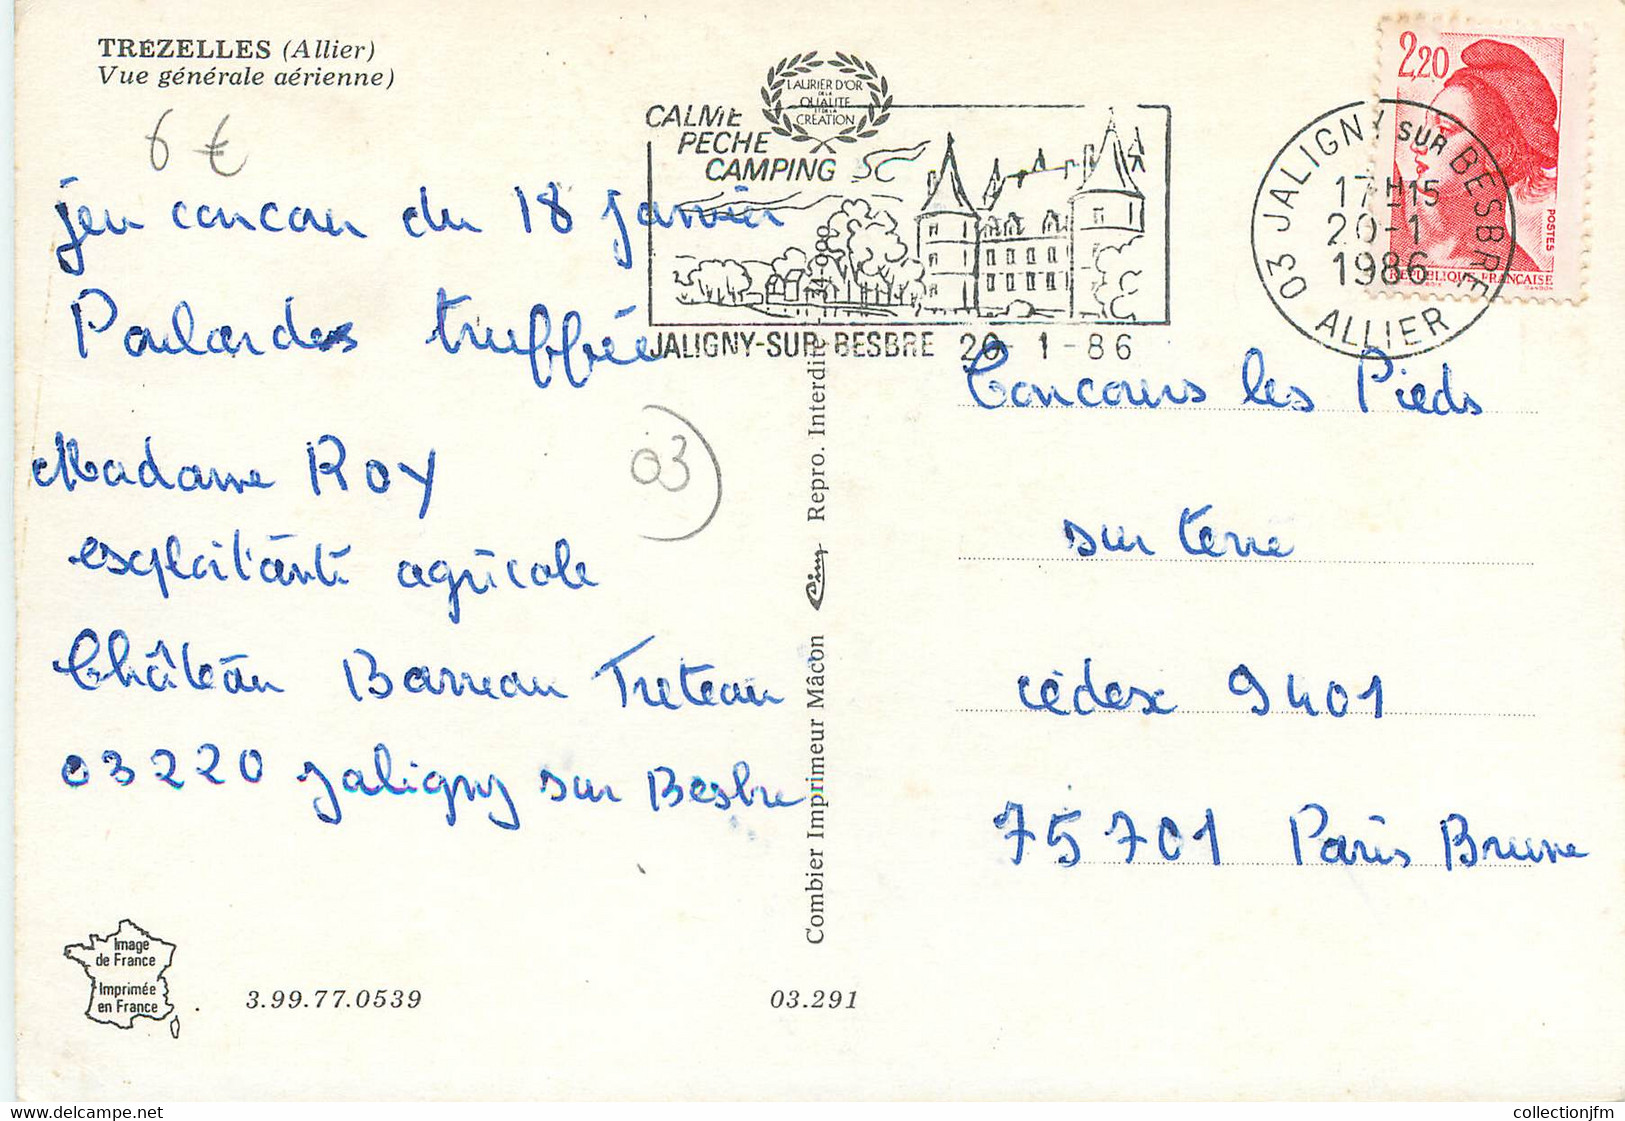 TRÉZELLES (Allier)
Vue générale aérienne)
6 €
LAURIER D'OR
DE LA
QUALITE
ET DE LA
CREATION
CALME
PECHE
CAMPING
JALIGNY-SUR-BESBRE 20-1-86
2,20
POSTES
REPUBLIQUE FRANÇAISE
GANDON
03 JALIGNY SUR BESBRE
17H15
20-1
1986
ALLIER
jeu concou du 18 Janvier
Poulardes truffée
Madame ROY
exploitante agricole
Château Barreau Treteau
03220 Jaligny sur Besbre
03
Concours les Pieds
sur terre
cédex 9401
75701 Paris Brune
Combier Imprimeur Mâcon Cim Repro. Interdite 34-090
Image
de France
Imprimée
en France
3.99.77.0539
03.291
collectionjfm